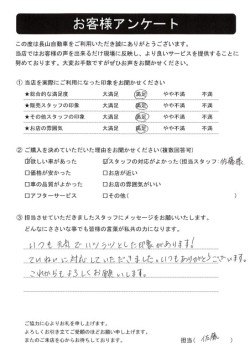 お客様アンケート
この度は長山自動車をご利用いただき誠にありがとうございます。
当店ではお客様の声を出来るだけ現場に反映し、より良いサービスを提供することに
努めております。大変お手数ですがぜひお声をお聞かせください。
① 当店を実際にご利用になった印象をお聞かせください
★総合的な満足度 大満足 満足 やや不満 不満
★販売スタッフの印象 大満足 満足 やや不満 不満
★その他スタッフの印象 大満足 満足 やや不満 不満
★お店の雰囲気 大満足 満足 やや不満 不満
② ご購入を決めていただいた理由をお聞かせください(複数回答可)
□欲しい車があった □スタッフの対応がよかった(担当スタッフ/佐藤様)
□価格が安かった □お店が近い
□車の品質がよかった □お店の雰囲気がいい
□アフターサービス □その他( )
③ 担当させていただきましたスタッフにメッセージをお願いいたします。
どんなにささいな事でも皆様の言葉が私共の力になります。
いつも元気でハツラツとした印象があります!
ていねいに対応していただきました。いつもありがとうございます。
これからもよろしくお願いします。
ご協力に心よりお礼を申し上げます。
よろしくお引き立てご愛顧のほどお願い申し上げます。
またのご来店を心からお待ちしております。
担当( 佐藤 )